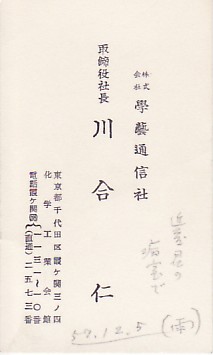 株式会社 學藝通信社
取締役社長
川合 仁
東京都千代田区霞ケ関三ノ四
化学工業会館
電話霞ケ関(58)
一一三一~一〇番
(直通)二五七三番
の
病室で
59.12.5(雨)